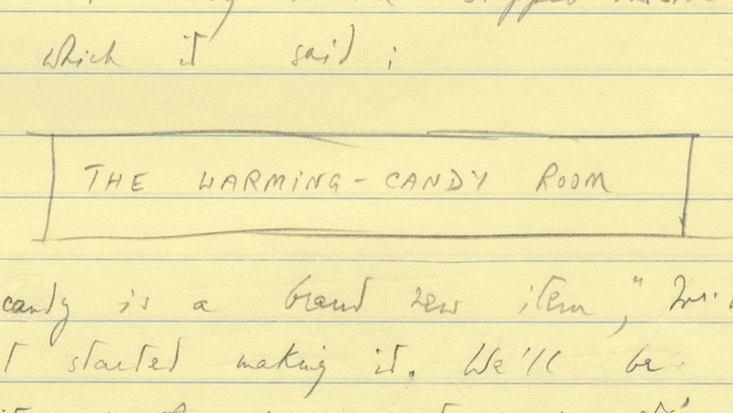 which it said:
THE WARMING-CANDY ROOM
candy is a brand new item," Mr.
started making it. We'll be